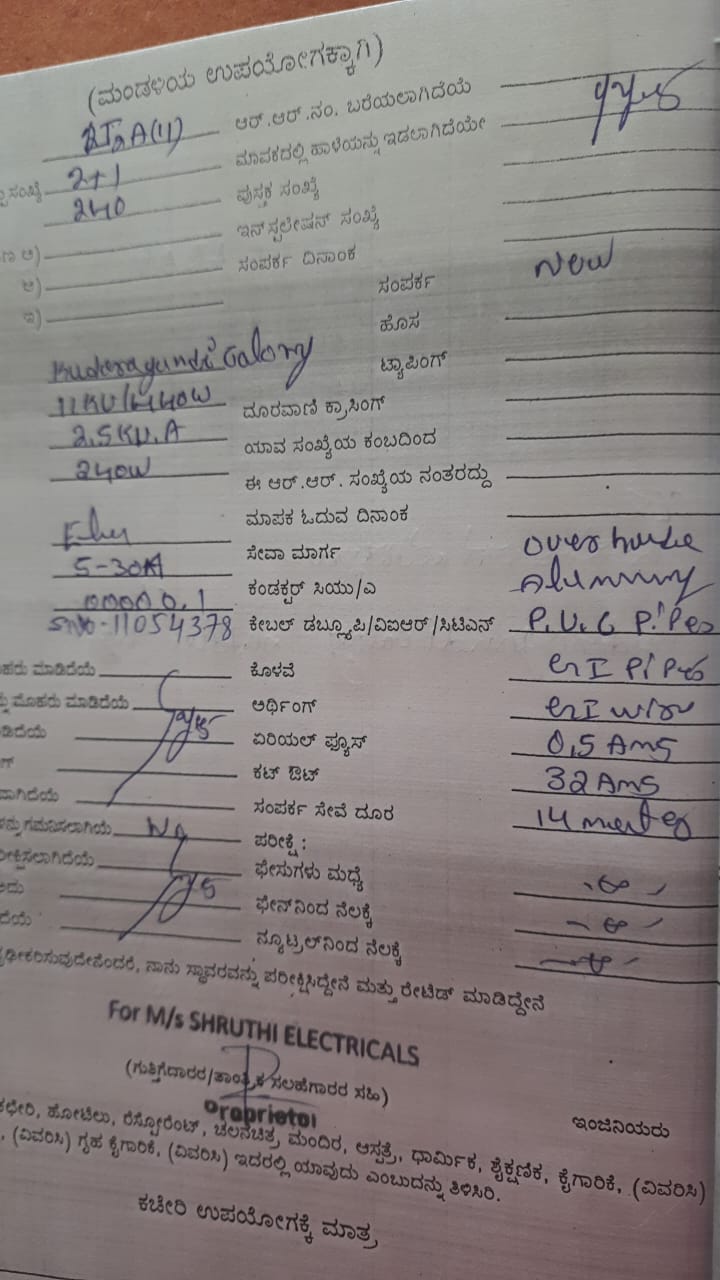 (ಮಂಡಳಿಯ ಉಪಯೋಗಕ್ಕಾಗಿ)
ಆರ್.ಆರ್.ನಂ. ಬರೆಯಲಾಗಿದೆಯೆ yes
ಸಂಖ್ಯೆ 2+1 ಮಾಪಕದಲ್ಲಿ ಹಾಳೆಯನ್ನು ಇಡಲಾಗಿದೆಯೇ
240 ಪುಸ್ತಕ ಸಂಖ್ಯೆ
ಇನ್‌ಸ್ಪಲೇಷನ್ ಸಂಖ್ಯೆ
ಸಂಪರ್ಕ ದಿನಾಂಕ
ಸಂಪರ್ಕ New
ಹೊಸ
ಟ್ಯಾಪಿಂಗ್
11KV/440W ದೂರವಾಣಿ ಕ್ರಾಸಿಂಗ್
2.5KV.A ಯಾವ ಸಂಖ್ಯೆಯ ಕಂಬದಿಂದ
240W ಈ ಆರ್.ಆರ್. ಸಂಖ್ಯೆಯ ನಂತರದ್ದು
ಮಾಪಕ ಓದುವ ದಿನಾಂಕ
5-30A ಸೇವಾ ಮಾರ್ಗ
00000.1 ಕಂಡಕ್ಟರ್ ಸಿಯು/ಎ
SNo-11054378 ಕೇಬಲ್ ಡಬ್ಲ್ಯೂಪಿ/ವಿಐಆರ್/ಸಿಟಿಎನ್ P.V.C Pipes
ಮೊಹರು ಮಾಡಿದೆಯೆ ಕೊಳವೆ GI Pipes
ಮೊಹರು ಮಾಡಿದೆಯೆ ಅರ್ಥಿಂಗ್ GI wire
yes ಏರಿಯಲ್ ಫ್ಯೂಸ್ 0.5 Ams
ಕಟ್ ಔಟ್ 32 Ams
ಸಂಪರ್ಕ ಸೇವೆ ದೂರ 14 meter
ಗಮನಿಸಲಾಗಿಯೆ ಪರೀಕ್ಷೆ:
ಫೇಸುಗಳು ಮಧ್ಯೆ
yes ಫೇಸ್‌ನಿಂದ ನೆಲಕ್ಕೆ
ನ್ಯೂಟ್ರಲ್‌ನಿಂದ ನೆಲಕ್ಕೆ
ದೃಢೀಕರಿಸುವುದೇನೆಂದರೆ, ನಾನು ಸ್ಥಾವರವನ್ನು ಪರೀಕ್ಷಿಸಿದ್ದೇನೆ ಮತ್ತು ರೇಟಿಡ್ ಮಾಡಿದ್ದೇನೆ
For M/s SHRUTHI ELECTRICALS
(ಗುತ್ತಿಗೆದಾರರ/ತಾಂತ್ರಿಕ ಸಲಹೆಗಾರರ ಸಹಿ)
Proprietor
ಇಂಜಿನಿಯರು
ಕಛೇರಿ, ಹೋಟೆಲು, ರೆಸ್ಟೋರೆಂಟ್, ಚಲನಚಿತ್ರ ಮಂದಿರ, ಆಸ್ಪತ್ರೆ, ಧಾರ್ಮಿಕ, ಶೈಕ್ಷಣಿಕ, ಕೈಗಾರಿಕೆ, (ವಿವರಿಸಿ)
, (ವಿವರಿಸಿ) ಗೃಹ ಕೈಗಾರಿಕೆ, (ವಿವರಿಸಿ) ಇದರಲ್ಲಿ ಯಾವುದು ಎಂಬುದನ್ನು ತಿಳಿಸಿರಿ.
ಕಚೇರಿ ಉಪಯೋಗಕ್ಕೆ ಮಾತ್ರ